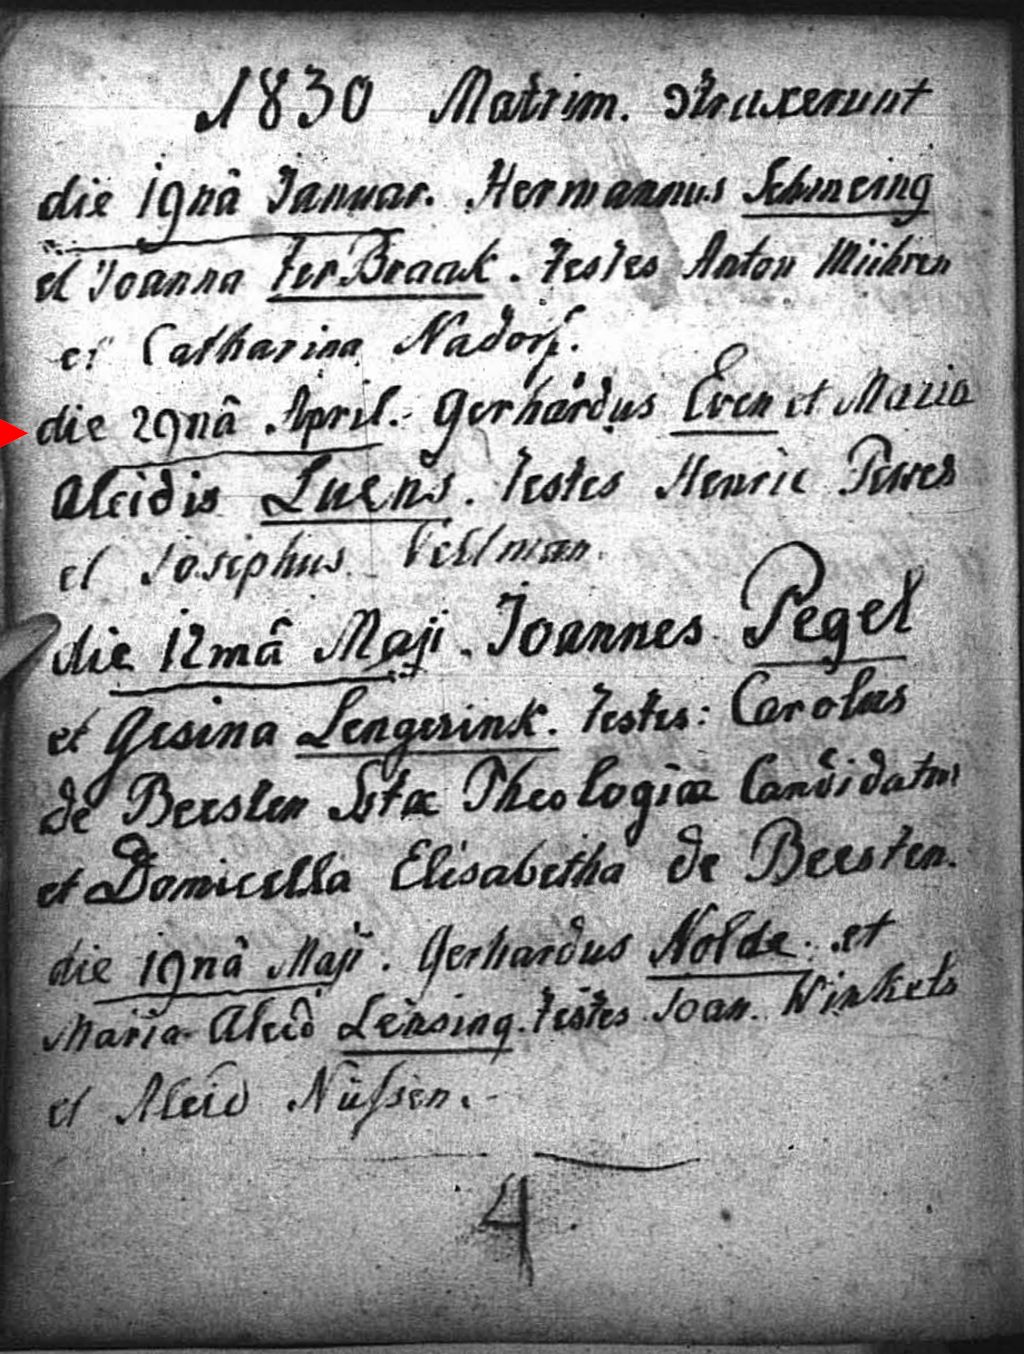 1830 Matrim. struxerunt
die 19nâ Januar. Hermannus Schmeing
et Joanna ter Braak. testes Anton Mühren
et Catharina Nadorf.
die 29nâ April. Gerhardus Even et Maria
Aleidis Luens. testes Henric
et Josephus Veltman.
die 12mâ Maji. Joannes Pegel
et Gesina Lengerink. testes: Carolus
de Beesten Sstæ Theologiæ Candidatus
et Domicella Elisabetha de Beesten.
die 19nâ Maji. Gerhardus Nolde. et
Maria Aleid Lensing. testes Joan. Winkels
et Aleid Nüssen.
4